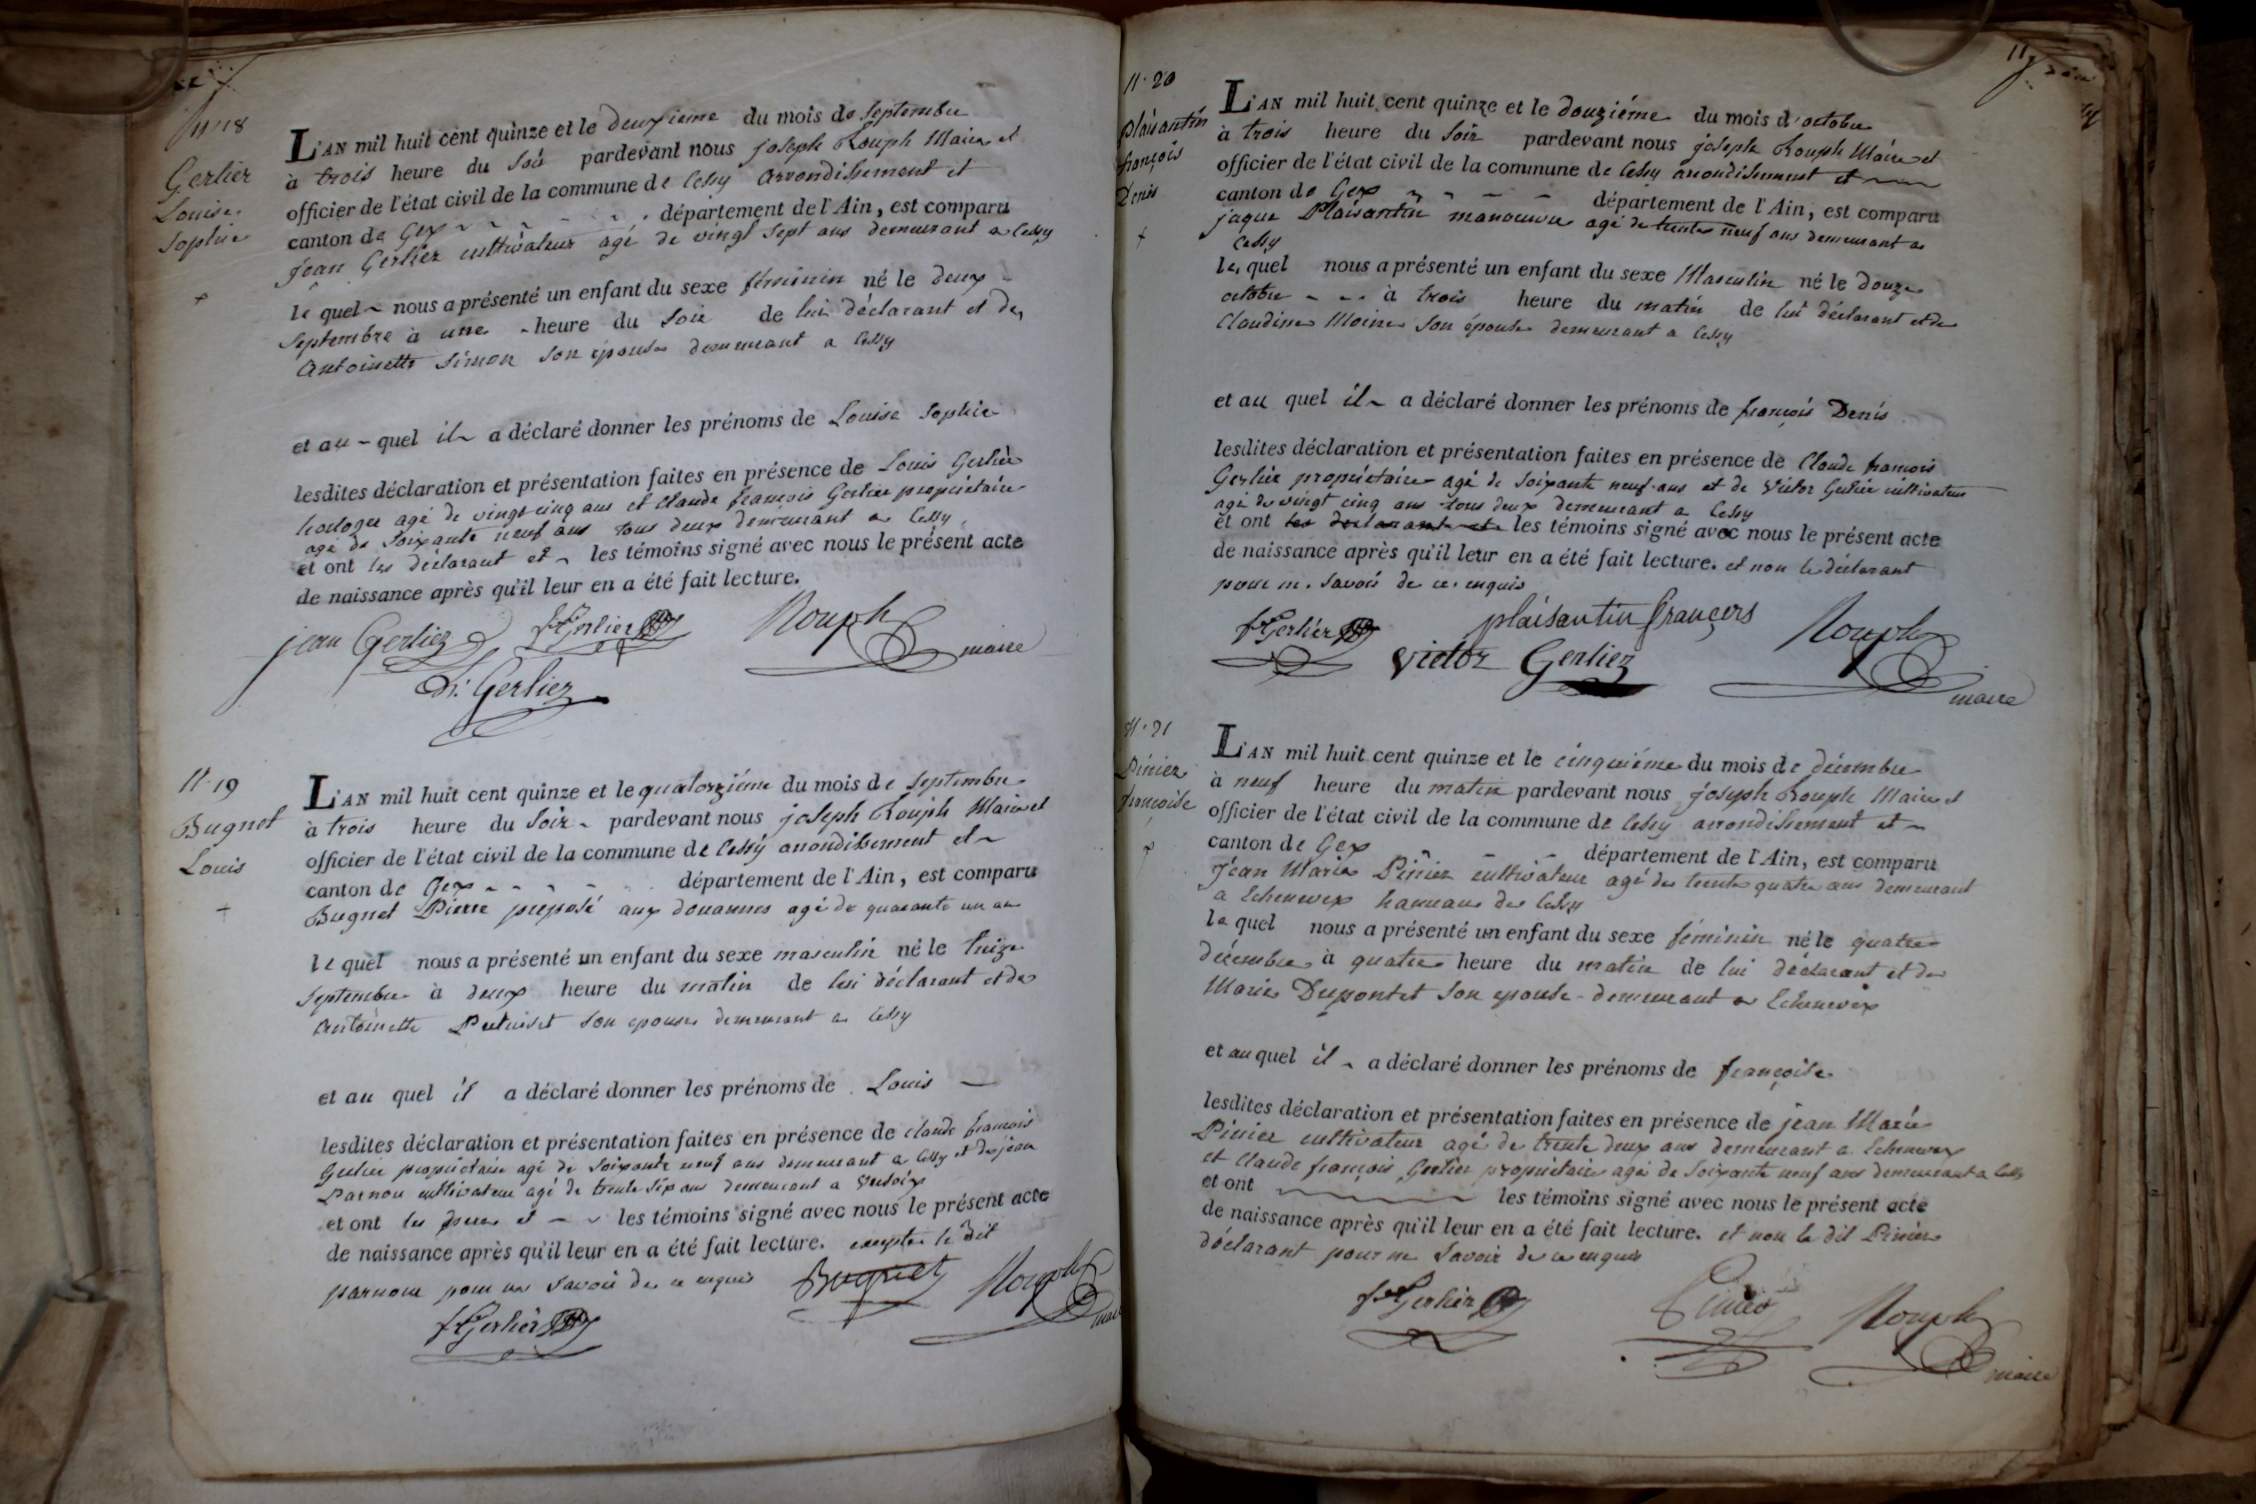 N° 18
Gerlier
Louise
Sophie
L'AN mil huit cent quinze et le deuxieme du mois de Septembre
à trois heure du Soir pardevant nous joseph Rouph Maire et
officier de l'état civil de la commune de Cessy arrondissement et
canton de Gex département de l'Ain, est comparu
Jean Gerlier cultivateur agé de vingt sept ans demeurant a Cessy
le quel nous a présenté un enfant du sexe féminin né le deux
Septembre à une heure du Soir de lui déclarant et de
Antoinette Simon son épouse demeurant a Cessy
et au quel il a déclaré donner les prénoms de Louise Sophie
lesdites déclaration et présentation faites en présence de Louis Gerlier
horloger agé de vingt cinq ans et Claude françois Gerlier propriétaire
agé de Soixante neuf ans tous deux demeurant a Cessy
et ont les déclarant et les témoins signé avec nous le présent acte
de naissance après qu'il leur en a été fait lecture.
jean Gerliez fs Gerlier Rouph maire
Ls. Gerliez
N° 19
Bugnet
Louis
L'AN mil huit cent quinze et le quatorziéme du mois de Septembre
à trois heure du Soir pardevant nous joseph Rouph Maire et
officier de l'état civil de la commune de Cessy arrondissement et
canton de Gex département de l'Ain, est comparu
Bugnet Pierre preposé aux douannes agé de quarante un an
le quel nous a présenté un enfant du sexe masculin né le treize
Septembre à deux heure du matin de lui déclarant et de
Antoinette son epouse demeurant a Cessy
et au quel il a déclaré donner les prénoms de Louis
lesdites déclaration et présentation faites en présence de claude francois
Gerlier propriétaire agé de Soixante neuf ans demeurant a Cessy et de jean
Parnou cultivateur agé de trente Six ans demeurant a Versoix
et ont les et les témoins signé avec nous le présent acte
de naissance après qu'il leur en a été fait lecture. excepter le dit
parnou pour ne Savoir de ce enquis Bugnet Rouph maire
fs Gerlier
N° 20
Plaisantin
françois
Denis
L'AN mil huit cent quinze et le douziéme du mois d'octobre
à trois heure du Soir pardevant nous joseph Rouph Maire et
officier de l'état civil de la commune de Cessy arrondissement et
canton de Gex département de l'Ain, est comparu
jaque Plaisantin manouvre agé de trente neuf ans demeurant a
Cessy
le quel nous a présenté un enfant du sexe Masculin né le douze
octobre à trois heure du matin de lui déclarant et de
Claudine Moine son épouse demeurant a Cessy
et au quel il a déclaré donner les prénoms de françois Denis
lesdites déclaration et présentation faites en présence de Claude francois
Gerlier propriétaire agé de Soixante neuf ans et de Victor Gerlier cultivateur
agé de vingt cinq ans tous deux demeurant a Cessy
et ont les declarant et les témoins signé avec nous le présent acte
de naissance après qu'il leur en a été fait lecture. et non le déclarant
pour ne Savoir de ce enquis
fs Gerlier plaisantin françois Rouph maire
Victor Gerliez
N° 21
Pinier
françoise
L'AN mil huit cent quinze et le cinquiéme du mois de décembre
à neuf heure du matin pardevant nous joseph Rouph Maire et
officier de l'état civil de la commune de Cessy arrondissement et
canton de Gex département de l'Ain, est comparu
Jean Marie Pinier cultivateur agé de trente quatre ans demeurant
a Echenevex hameau de Cessy
le quel nous a présenté un enfant du sexe féminin né le quatre
décembre à quatre heure du matin de lui déclarant et de
Marie Dupontet son epouse demeurant a Echenevex
et au quel il a déclaré donner les prénoms de françoise
lesdites déclaration et présentation faites en présence de jean Marie
Pinier cultivateur agé de trente deux ans demeurant a Echenevex
et Claude françois Gerlier propriétaire agé de Soixante neuf ans demeurant a Cessy
et ont les témoins signé avec nous le présent acte
de naissance après qu'il leur en a été fait lecture. et non le dit Pinier
déclarant pour ne Savoir de ce enquis
fs Gerlier Pinier Rouph maire